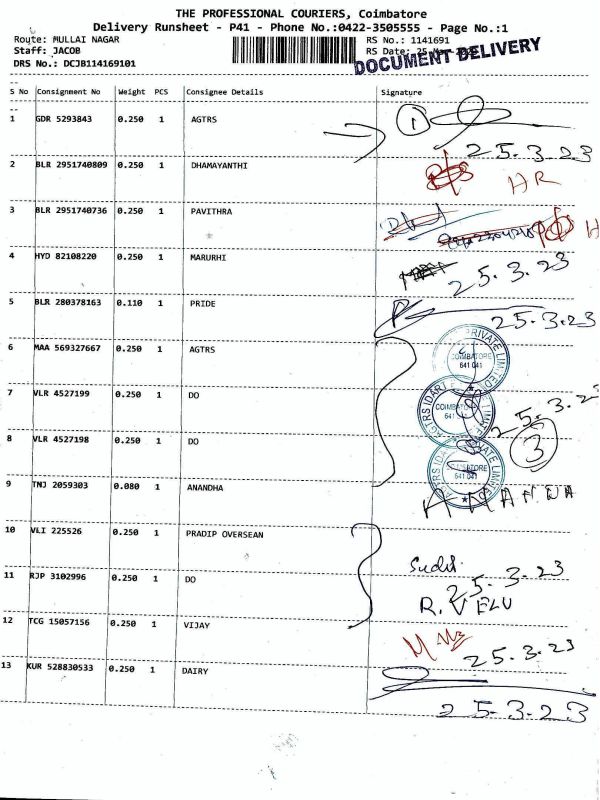 THE PROFESSIONAL COURIERS, Coimbatore
Delivery Runsheet - P41 - Phone No.:0422-3505555 - Page No.:1
Route: MULLAI NAGAR RS No.: 1141691
Staff: JACOB RS Date: 25
DRS No.: DCJB114169101 DOCUMENT DELIVERY
S No Consignment No Weight PCS Consignee Details Signature
1 GDR 5293843 0.250 1 AGTRS 1
25.3.23
2 BLR 2951740809 0.250 1 DHAMAYANTHI
HR
3 BLR 2951740736 0.250 1 PAVITHRA
4 HYD 82108220 0.250 1 MARURHI
25.3.23
5 BLR 280378163 0.110 1 PRIDE
25.3.23
6 MAA 569327667 0.250 1 AGTRS
PRIVATE LIMITED
COIMBATORE
641 041
7 VLR 4527199 0.250 1 DO
AGTRS IDARI
COIMBATORE
641
25.3.23
8 VLR 4527198 0.250 1 DO 3
PRIVATE LIMITED
641 041
9 TNJ 2059303 0.080 1 ANANDHA
10 VLI 225526 0.250 1 PRADIP OVERSEAN
25.3.23
11 RJP 3102996 0.250 1 DO
R. VELU
12 TCG 15057156 0.250 1 VIJAY
25.3.23
13 KUR 528830533 0.250 1 DAIRY
25.3.23